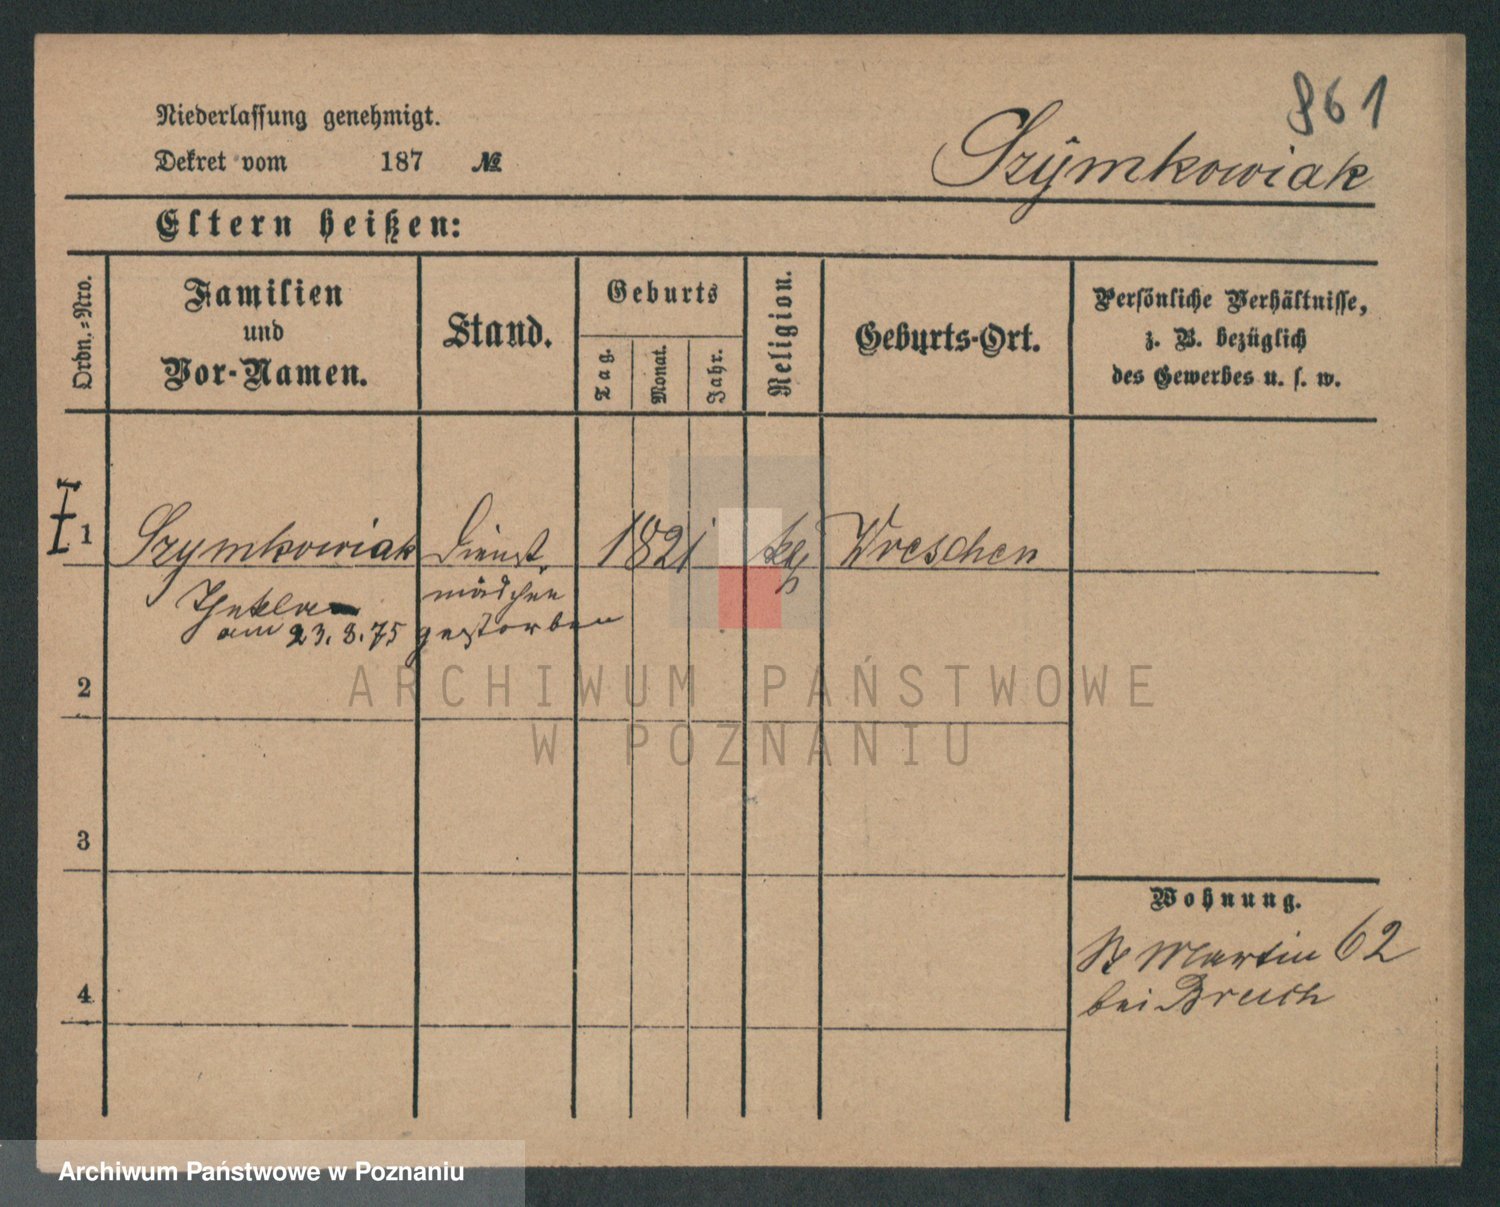 861
Niederlassung genehmigt.
Dekret vom 187 №
Szymkowiak
Eltern heißen:
Ordn.=Nro.
Familien
und
Vor-Namen.
Stand.
Geburts
Tag.
Monat.
Jahr.
Religion.
Geburts-Ort.
Persönliche Verhältnisse,
z. B. bezüglich
des Gewerbes u. s. w.
1 Szymkowiak Dienst 1821 Wreschen
Thekla mädchen
am 23.8.75 gestorben
2
ARCHIWUM PAŃSTWOWE
W POZNANIU
3
Wohnung.
St Martin 62
4
bei Bruch
Archiwum Państwowe w Poznaniu